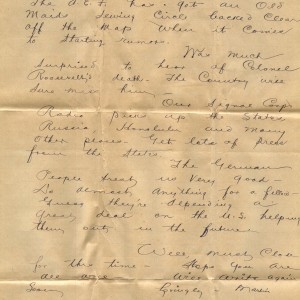 The A.E.F. has got an Old
Maids Sewing Circle backed Clear
off the Map When it Comes
to Starting rumors.
Was much
Surprised to hear of Colonel
Roosevelt's death - The Country will
Sure miss him
Our Signal Corps
Radio picks up the States
Russia, Honolulu and many
Other places. Get lots of press
from the States.
The German
People treat us Very Good -
Do almost Anything for a fellow -
Guess they're depending a
Great deal on the U.S. helping
them out in the future.
Well must Close
for the time - Hope you are
all
Will write again
Soon